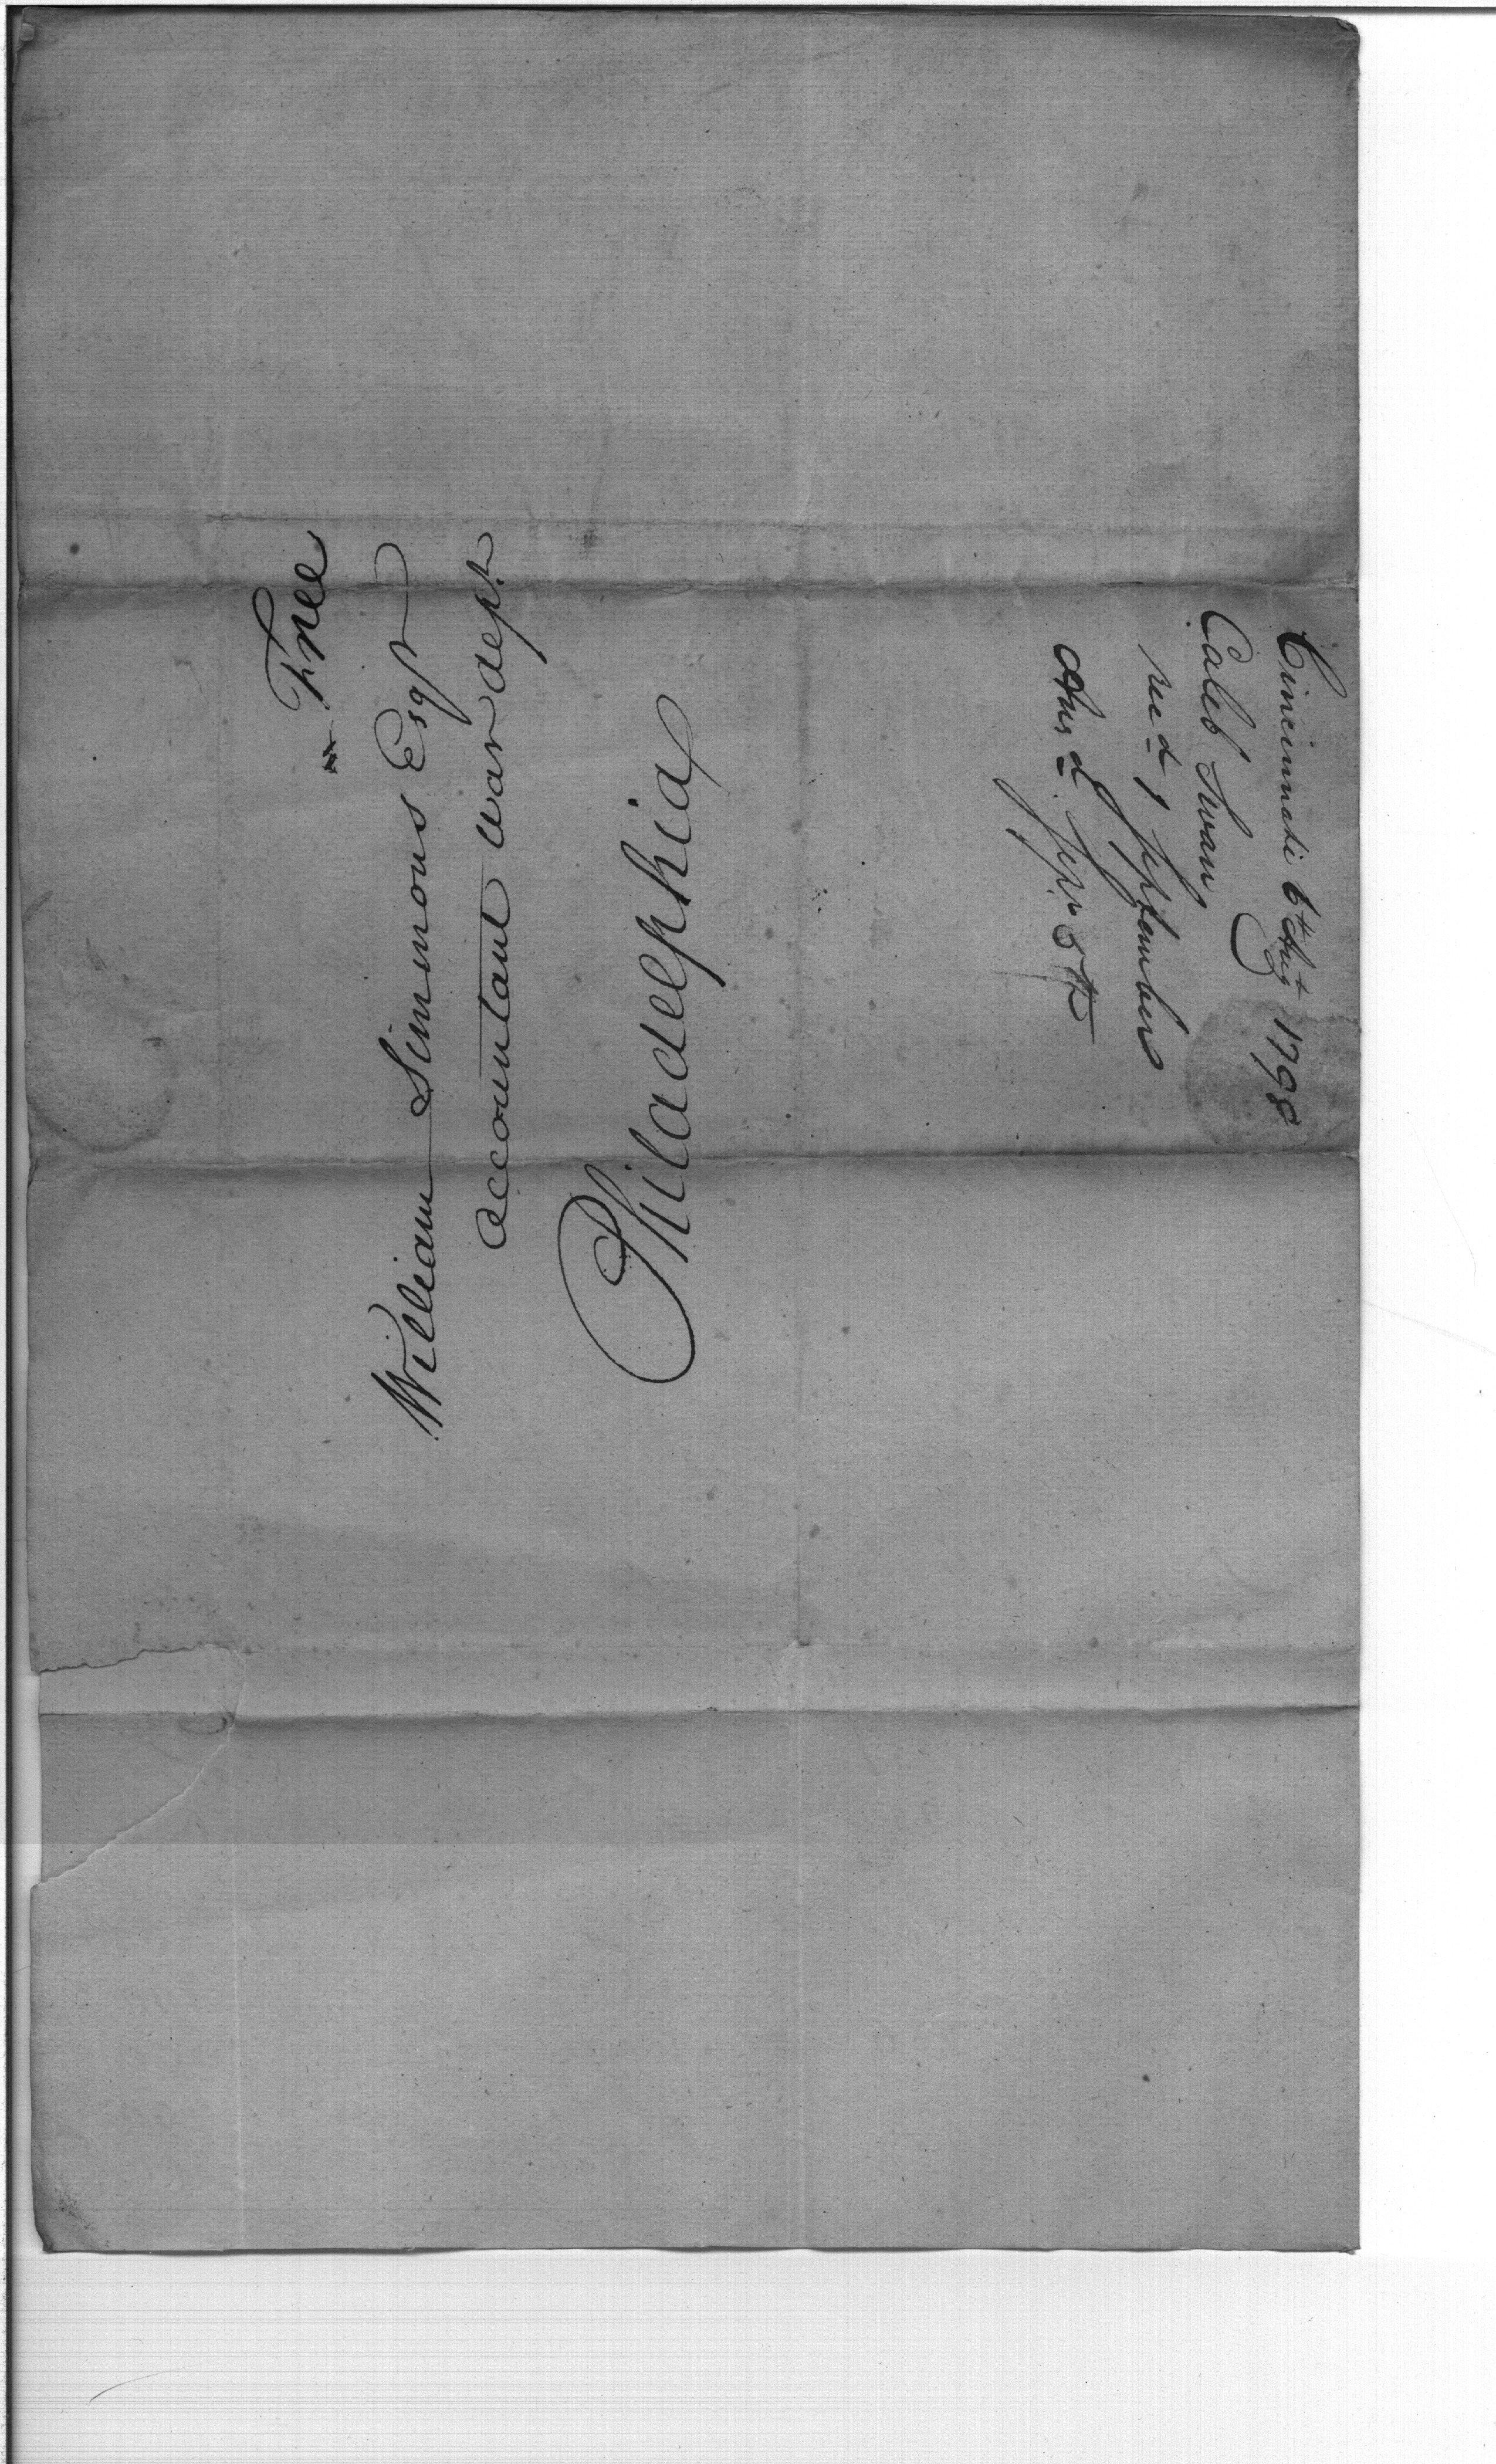 Free
William Simmons Esqr
accountant war dept.
Philadelphia
Cincinnati 6th Augt 1798
Caleb Swan
recd 1 September
Ansd. Sepr 5th